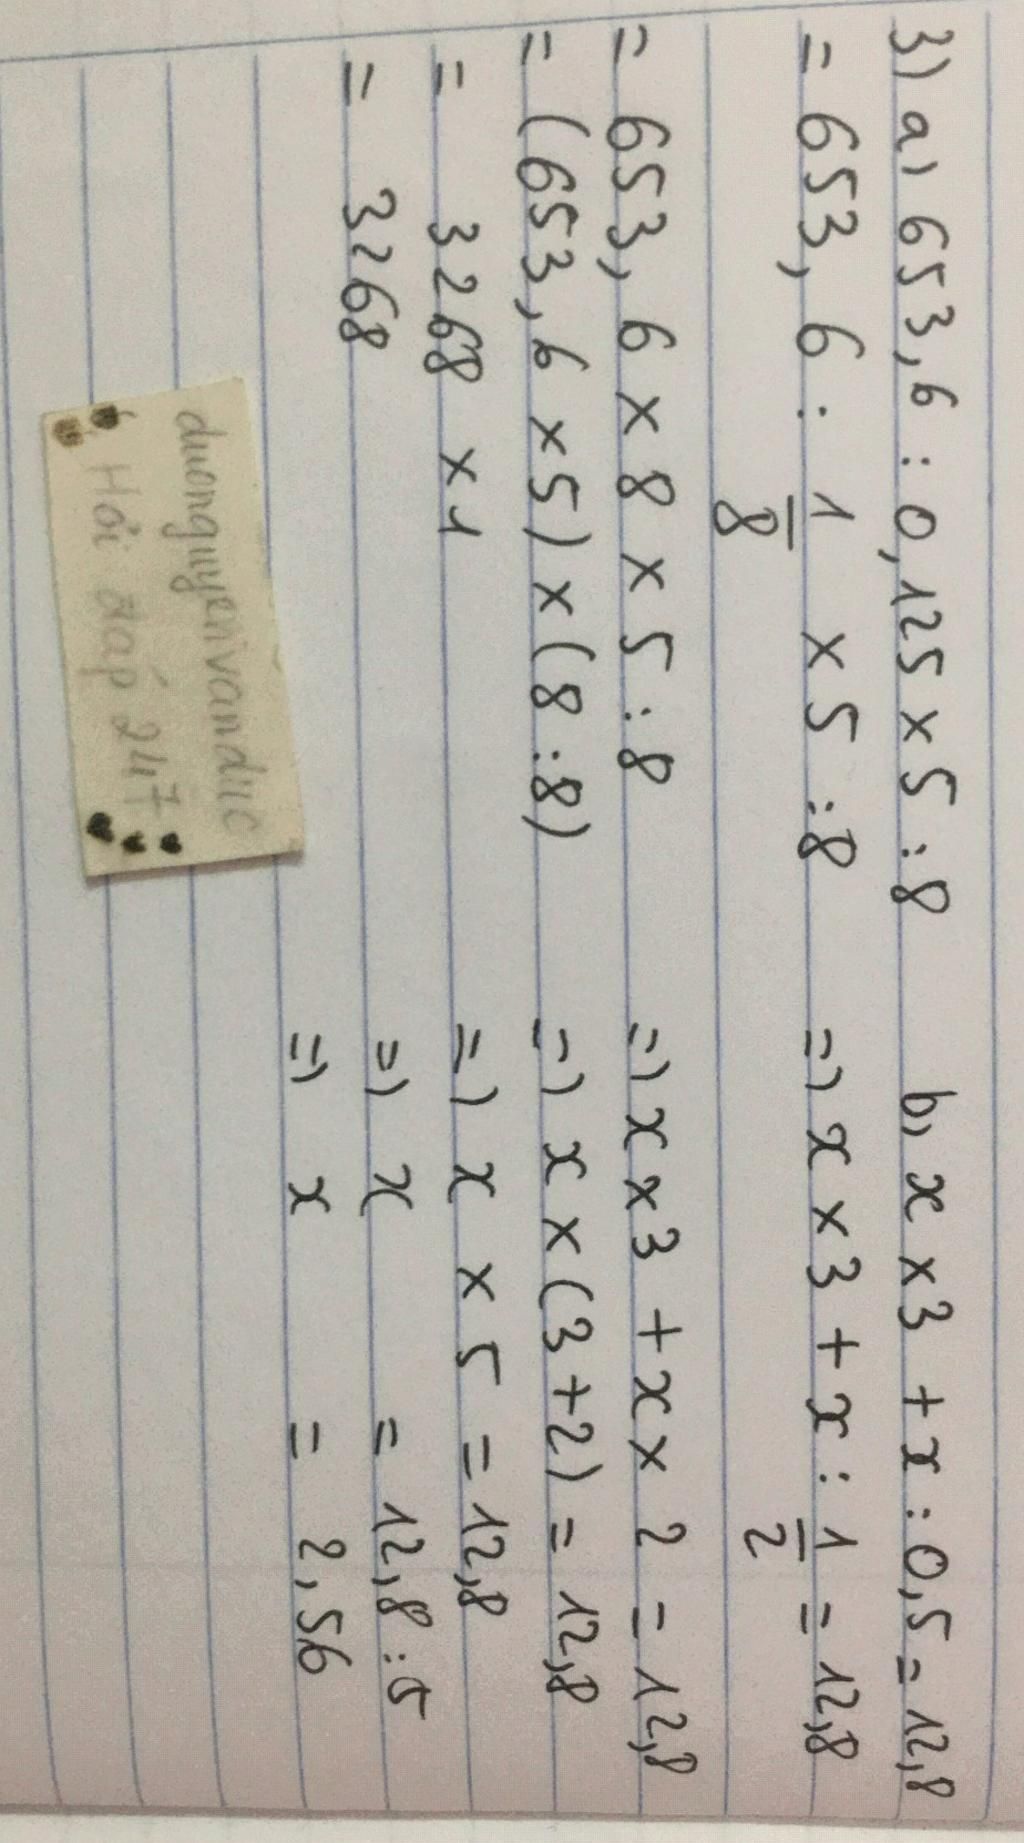 3) a) 653,6 : 0,125 x 5 : 8
= 653,6 : 1/8 x 5 : 8
= 653,6 x 8 x 5 : 8
= (653,6 x 5) x (8 : 8)
= 3268 x 1
= 3268
b) x x 3 + x : 0,5 = 12,8
=) x x 3 + x : 1/2 = 12,8
=) x x 3 + x x 2 = 12,8
=) x x (3 + 2) = 12,8
=) x x 5 = 12,8
=) x = 12,8 : 5
=) x = 2,56
duonguyenvanduc
Hỏi đáp 247